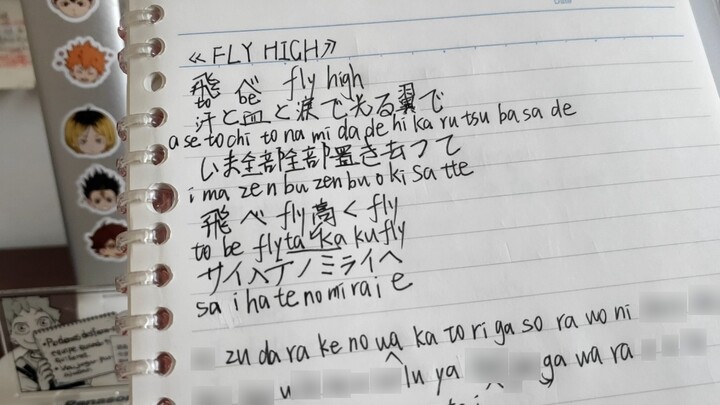 《FLY HIGH》
飛べ fly high
to be
汗と血と涙で光る翼で
a se to chi to na mi da de hi ka ru tsu ba sa de
いま全部全部置き去って
i ma zen bu zen bu o ki sa tte
飛べ fly 高く fly
to be fly ta ka ku fly
サイハテノミライへ
sa i ha te no mi ra i e
zu da ra ke no ua ka to ri ga so ra wo ni
lu ya ga wa ra
Date